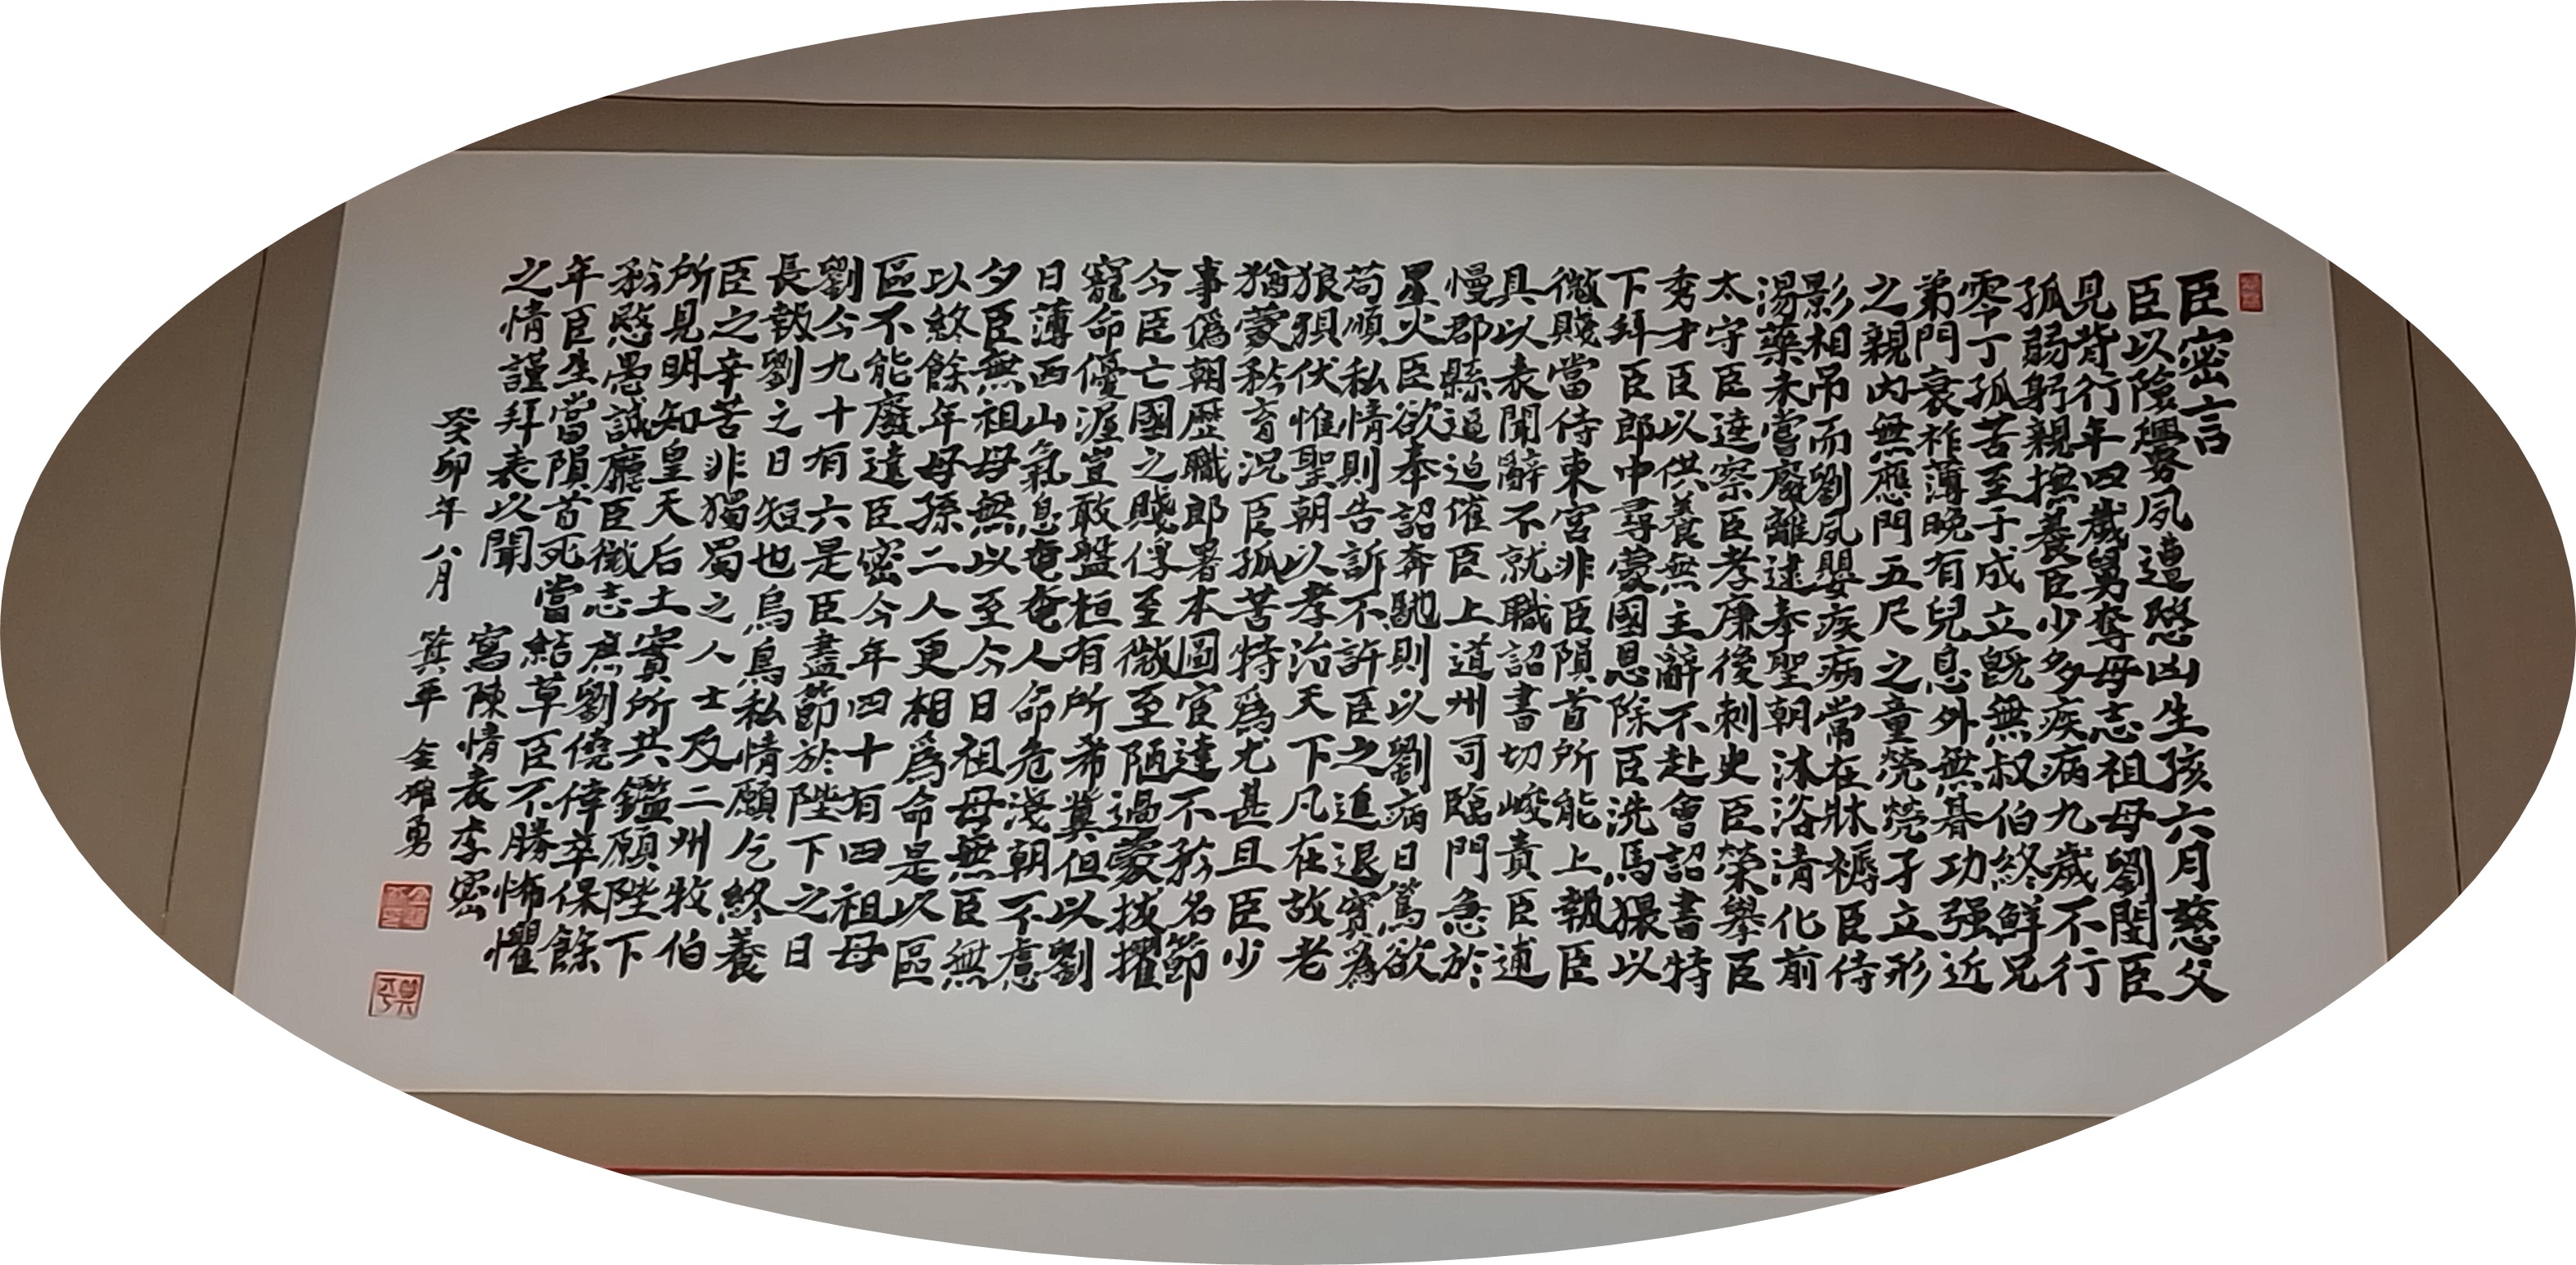 臣密言
臣以險釁夙遭愍凶生孩六月慈父
見背行年四歲舅奪母志祖母劉閔臣
孤弱躬親撫養臣少多疾病九歲不行
零丁孤苦至于成立既無叔伯終鮮兄
弟門衰祚薄晚有兒息外無朞功强近
之親內無應門五尺之童煢煢孑立形
影相吊而劉夙嬰疾病常在牀褥臣侍
湯藥未嘗廢離逮奉聖朝沐浴清化前
太守臣逵察臣孝廉後刺史臣榮舉臣
秀才臣以供養無主辭不赴會詔書特
下拜臣郎中尋蒙國恩除臣洗馬猥以
微賤當侍東宮非臣隕首所能上報臣
具以表聞辭不就職詔書切峻責臣逋
慢郡縣逼迫催臣上道州司臨門急於
星火臣欲奉詔奔馳則以劉病日篤欲
苟順私情則告訴不許臣之進退實為
狼狽伏惟聖朝以孝治天下凡在故老
猶蒙矜育況臣孤苦特爲尤甚且臣少
事僞朝歷職郎署本圖宦達不矜名節
今臣亡國之賤俘至微至陋過蒙拔擢
寵命優渥豈敢盤桓有所希冀但以劉
日薄西山氣息奄奄人命危淺朝不慮
夕臣無祖母無以至今日祖母無臣無
以終餘年母孫二人更相爲命是以區
區不能廢遠臣密今年四十有四祖母
劉今九十有六是臣盡節於陛下之日
長報劉之日短也烏鳥私情願乞終養
臣之辛苦非獨蜀之人士及二州牧伯
所見明知皇天后土實所共鑑願陛下
矜愍愚誠廳臣微志庶劉僥倖卒保餘
年臣生當隕首死當結草臣不勝怖懼
之情謹拜表以聞 寫陳情表李密
癸卯年八月 箕平 金雄勇